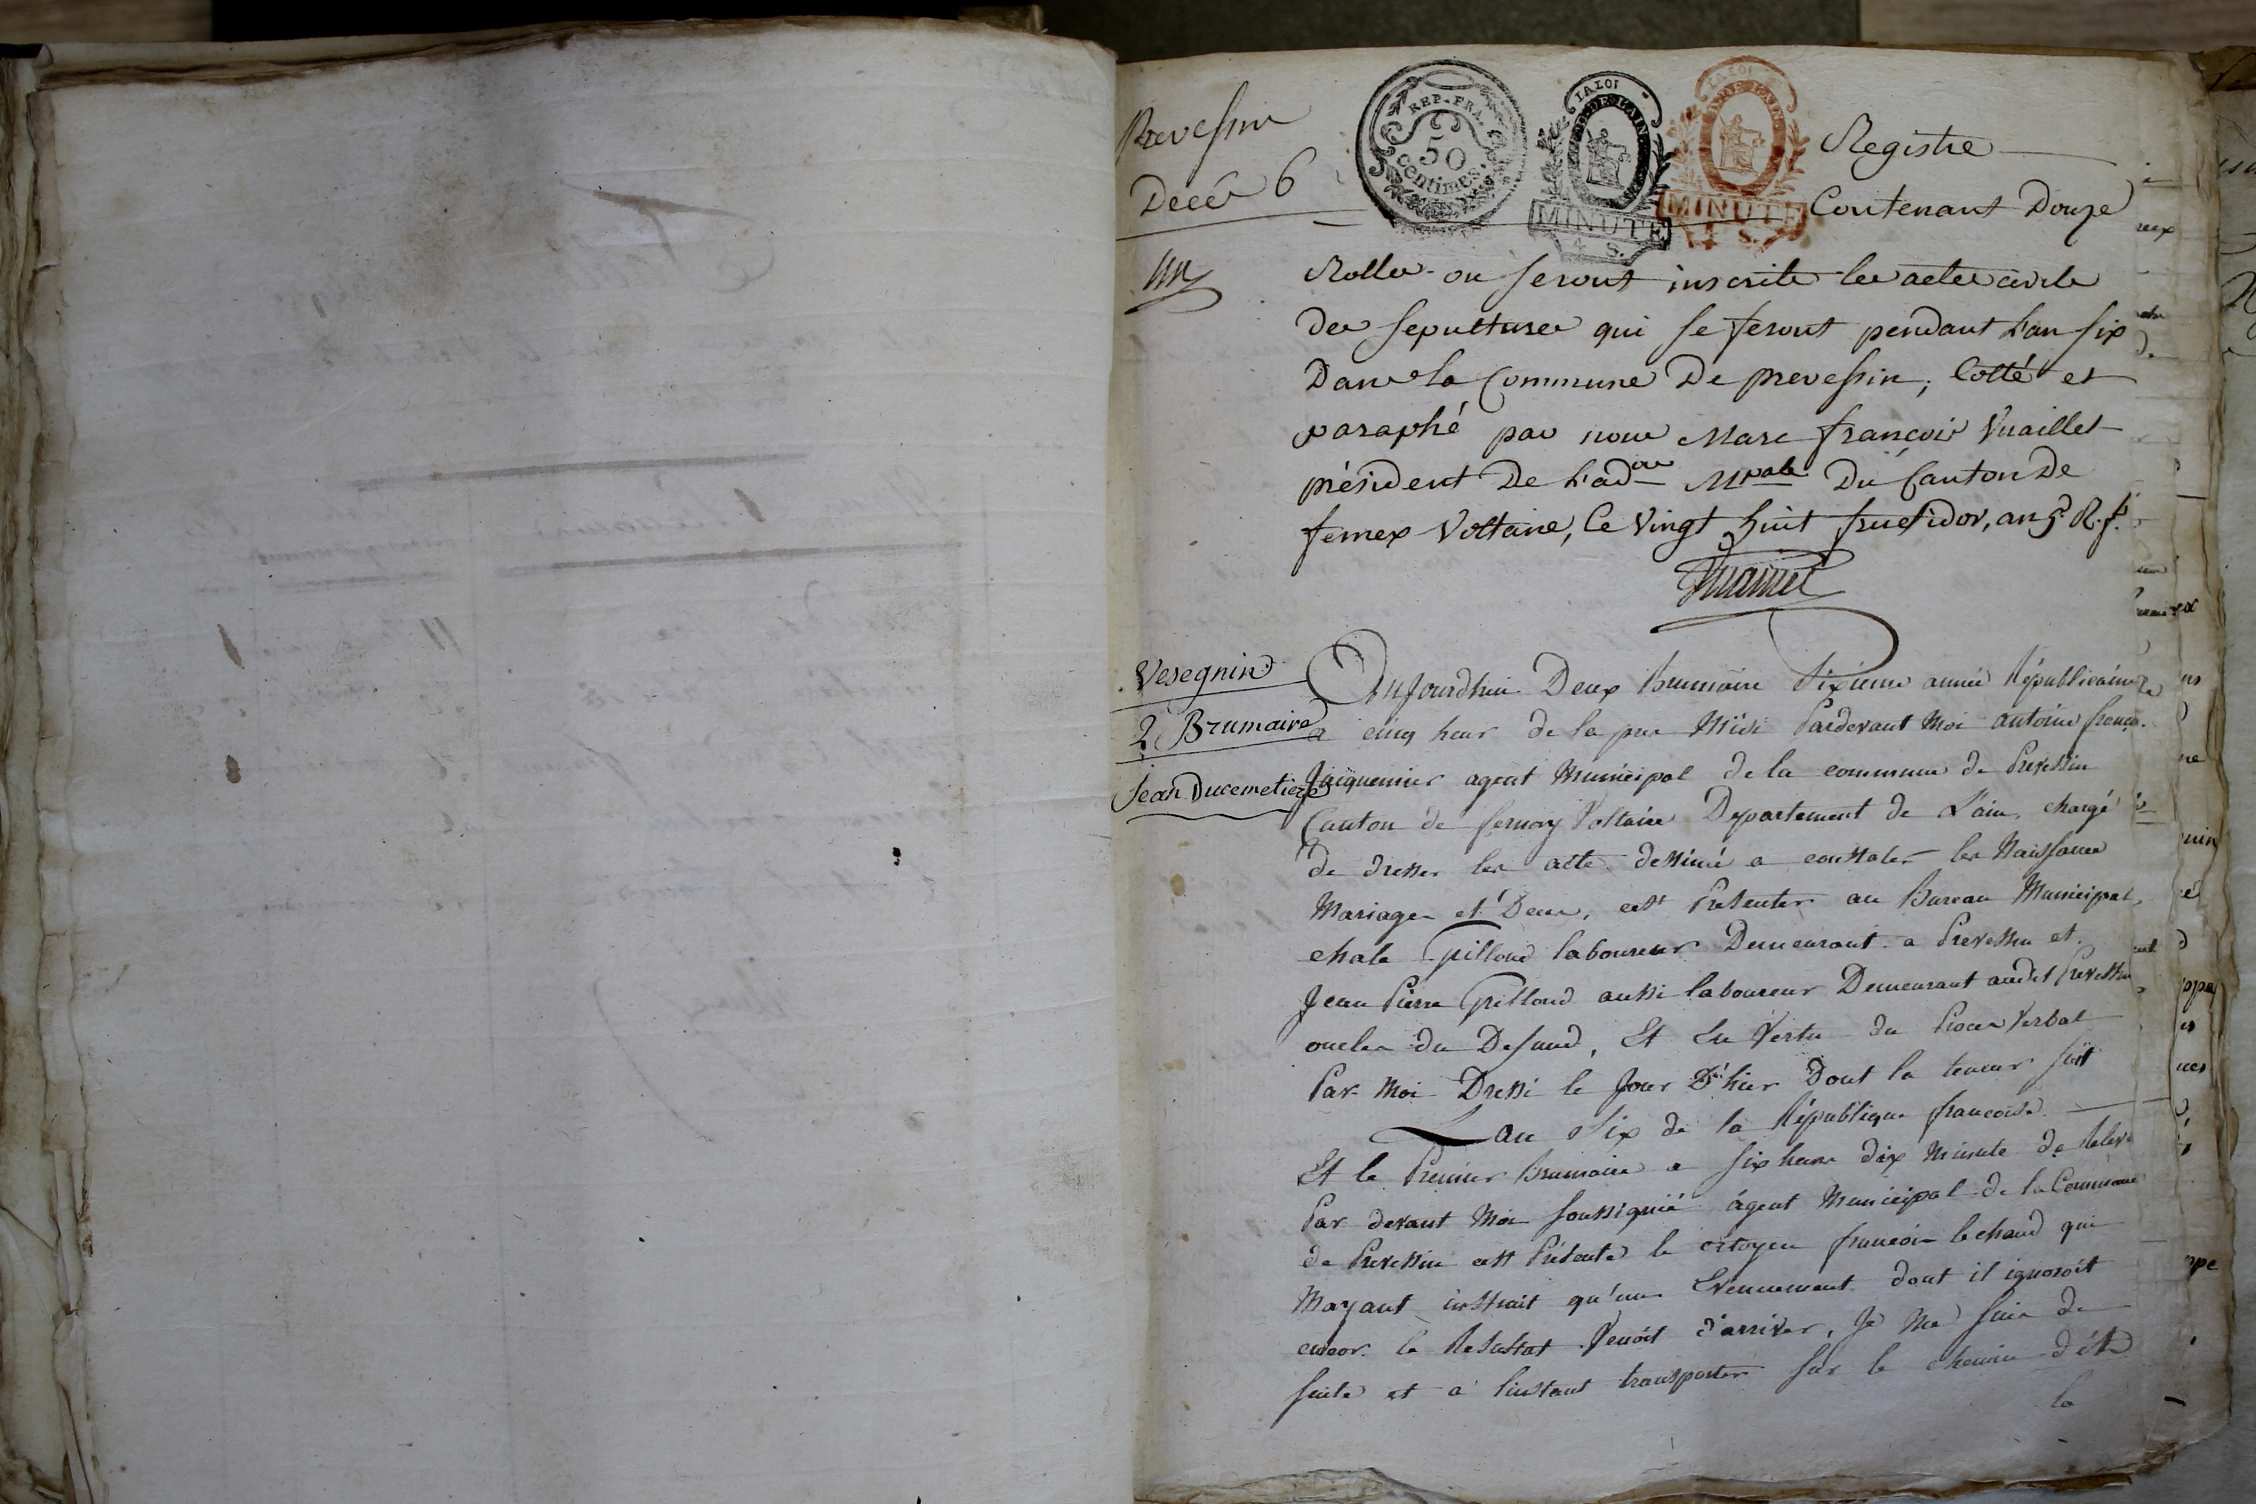 Prevessin
Decès 6
un
REP. FRA.
50
centimes
LA LOI
DEP. DE L'AIN
MINUTE
4 S.
LA LOI
DEP. DE L'AIN
MINUTE
4 S.
Registre
Contenant Douze
Rolles ou seront inscrits les actes civils
des sepultures qui se feront pendant L'an six
Dans la Commune De prevessin, Cotté et
paraphé par nous Marc françois Vuaillet
président De L'ad.on M.pale Du Canton De
fernex Voltaire, le vingt huit fructidor, an 5.e R. f.
Vuaillet
Vesegnin
2 Brumaire
Jean Ducemetiere
Aujourdhui Deux Brumaire Sixieme année Républicaine
a cinq heur de la pres Midi Pardevant Moi antoine franç.
Jacquemier agent Municipal de la commune de Prevessin
Canton de fernay Voltaire Departement de L'ain, chargé
de dresser les acte destiné a constater les Naissance
Mariages et Deces, est Presenter au Bureau Municipal,
chale Grilloud laboureur Demeurant a Prevessin et
Jean Pierre Grilloud aussi laboureur Demeurant audit Prevessin
oncles du Defund, Et En Vertu du Proces Verbal
Par Moi Dressé le Jour D'hier Dont la teneur suit
Lan Six de la République francoise
Et le Premier Brumaire a six heure dix Minute de Relevé
Par devant Moi soussignié ágent Municipal de la Commune
de Prevessin est Présenté le citoyen francois bechaud qui
Mayant instruit qu'un Evenement dont il ignoroit
encor le Resultat Venoit d'arriver, Je Me suis de
suite et a linstant transporter sur le chemin d'ét
la